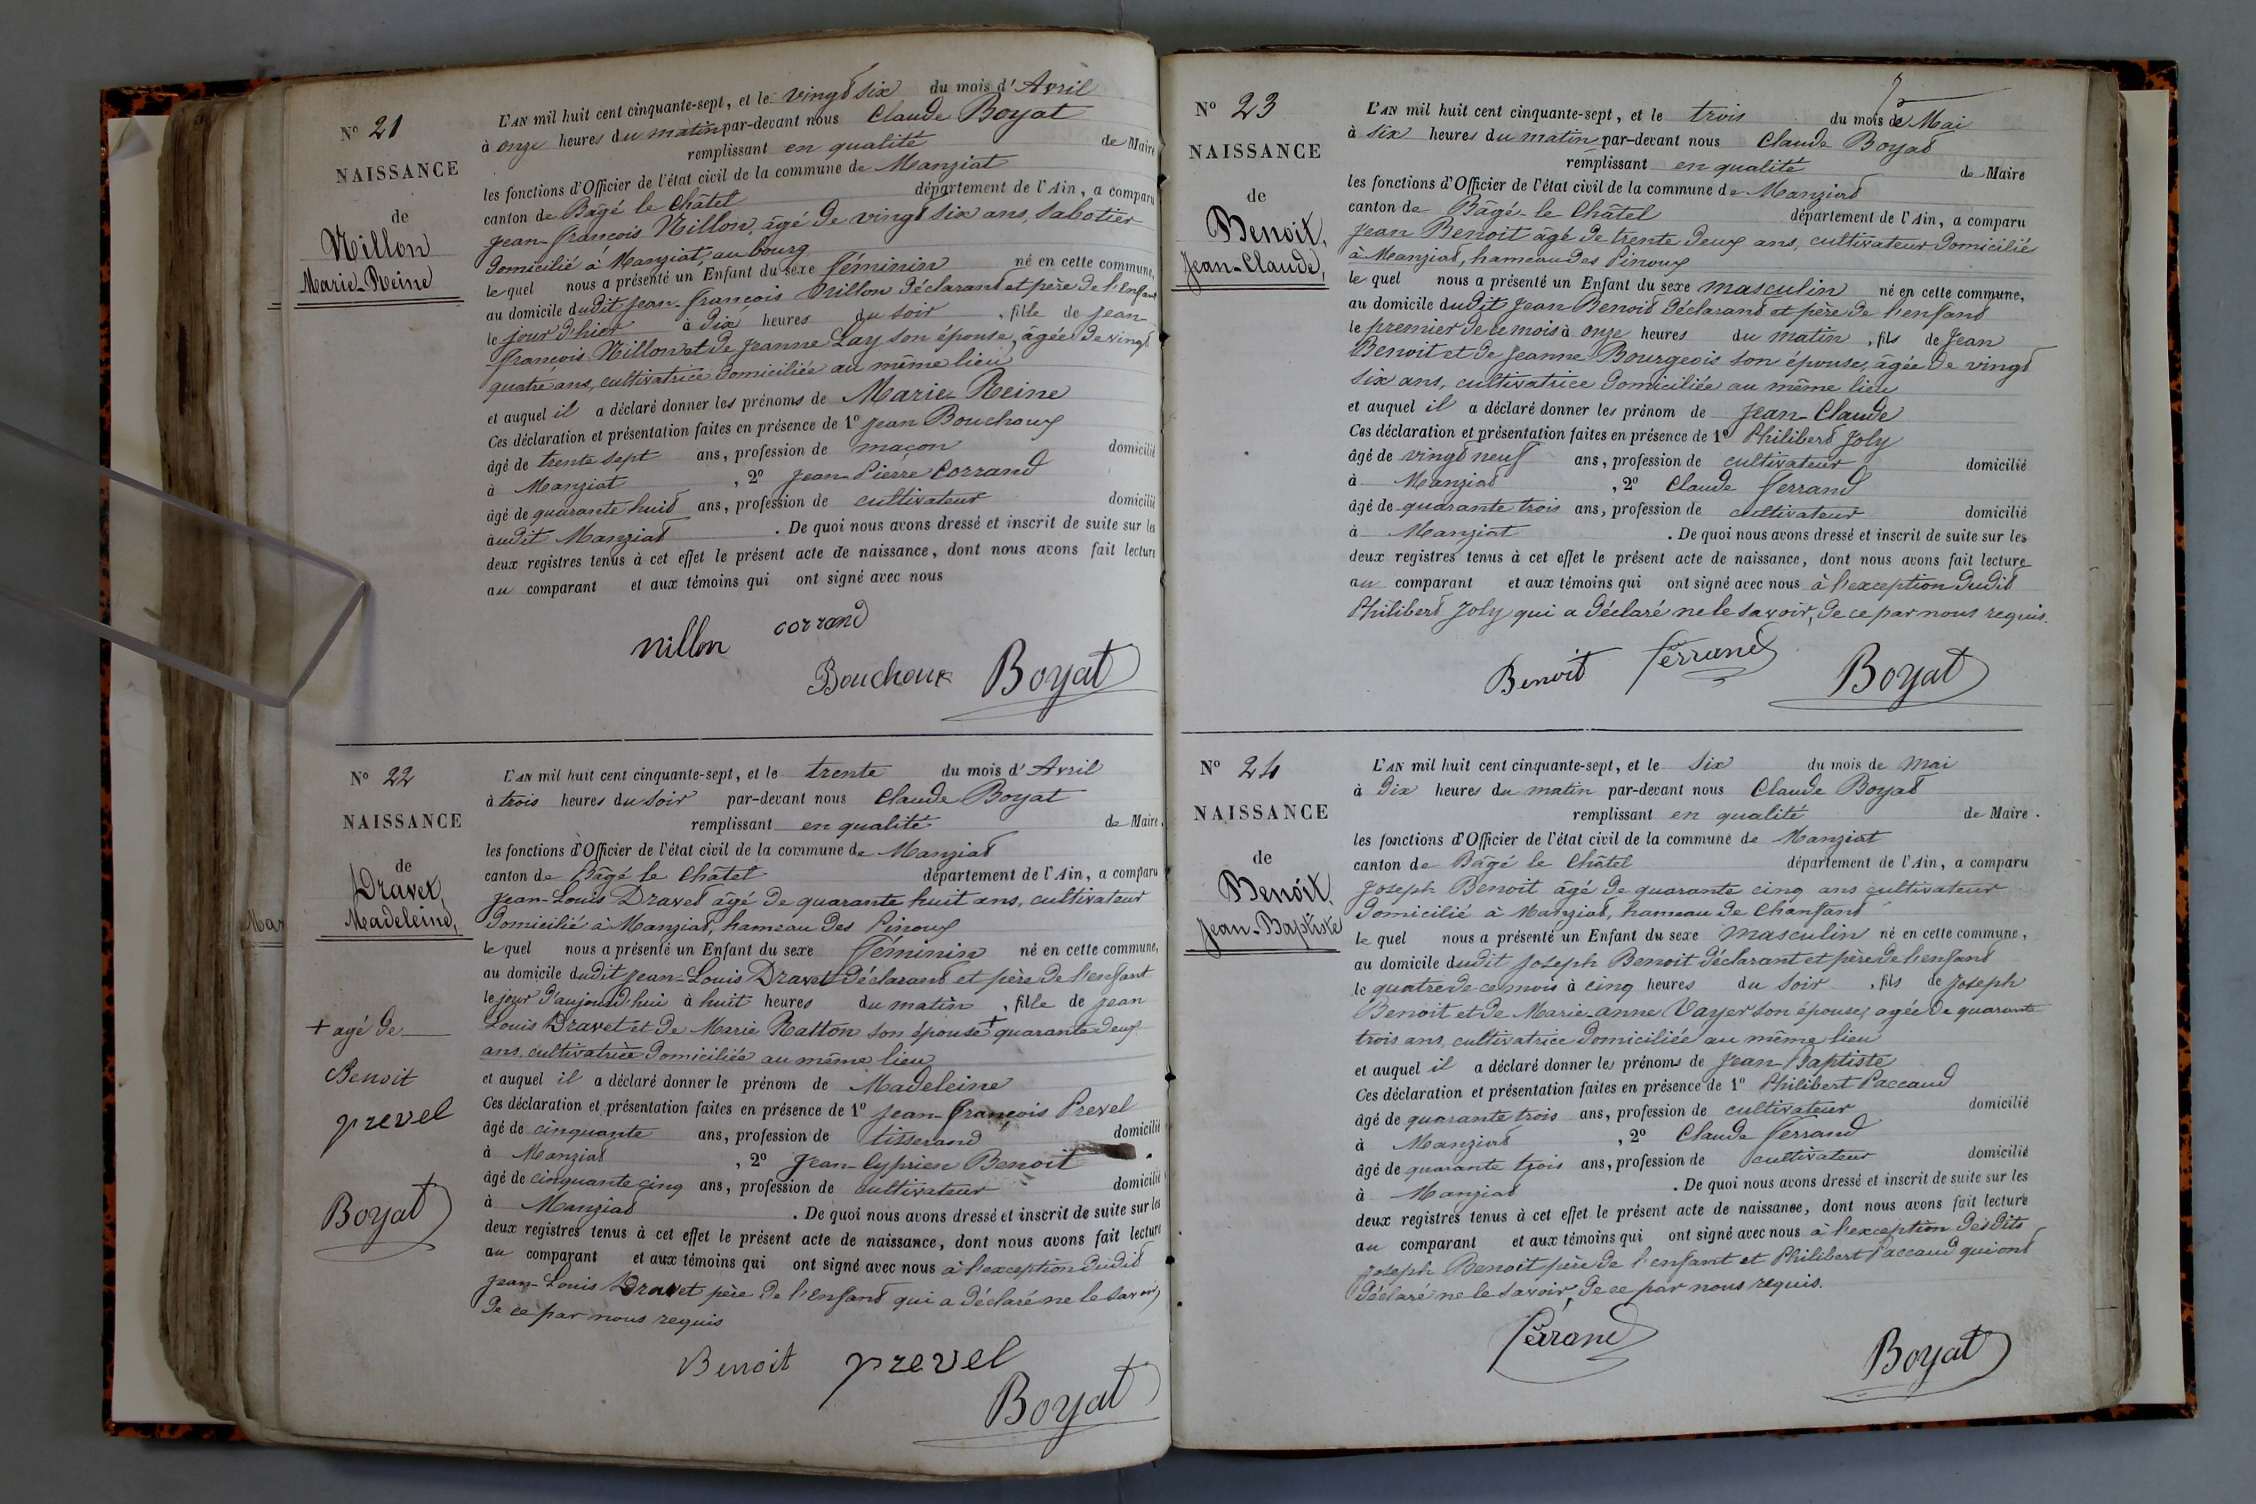 N° 21
NAISSANCE
de
Nillon
Marie-Reine
L'AN mil huit cent cinquante-sept, et le vingt six du mois d'Avril
à onze heures du matin par-devant nous Claude Boyat
remplissant en qualité de Maire
les fonctions d'Officier de l'état civil de la commune de Manziat
canton de Bâgé le Châtel département de l'Ain, a comparu
Jean-François Nillon, âgé de vingt six ans, sabotier
domicilié à Manziat, au bourg
le quel nous a présenté un Enfant du sexe féminin né en cette commune,
au domicile dudit Jean-François Nillon déclarant et père de l'enfant
le jour d'hier à dix heures du soir, fille de Jean-
François Nillon et de Jeanne Lay son épouse, âgée de vingt
quatre ans, cultivatrice domiciliée au même lieu
et auquel il a déclaré donner les prénoms de Marie-Reine
Ces déclaration et présentation faites en présence de 1° Jean Bouchoux
âgé de trente sept ans, profession de maçon domicilié
à Manziat, 2° Jean-Pierre Corrand
âgé de quarante huit ans, profession de cultivateur domicilié
audit Manziat. De quoi nous avons dressé et inscrit de suite sur les
deux registres tenus à cet effet le présent acte de naissance, dont nous avons fait lecture
au comparant et aux témoins qui ont signé avec nous
Nillon corrand
Bouchoux Boyat
N° 22
NAISSANCE
de
Dravet,
Madeleine,
L'AN mil huit cent cinquante-sept, et le trente du mois d'Avril
à trois heures du soir par-devant nous Claude Boyat
remplissant en qualité de Maire.
les fonctions d'Officier de l'état civil de la commune de Manziat
canton de Bâgé le Châtel département de l'Ain, a comparu
Jean-Louis Dravet âgé de quarante huit ans, cultivateur
domicilié à Manziat, hameau des Pinoux
le quel nous a présenté un Enfant du sexe féminin né en cette commune,
au domicile dudit Jean-Louis Dravet déclarant et père de l'enfant
le jour d'aujourd'hui à huit heures du matin, fille de Jean
Louis Dravet et de Marie Ratton son épouse + quarante deux
ans, cultivatrice domiciliée au même lieu
et auquel il a déclaré donner le prénom de Madeleine
Ces déclaration et présentation faites en présence de 1° Jean-François Prevel
âgé de cinquante ans, profession de tisserand domicilié
à Manziat, 2° Jean-Cyprien Benoit
âgé de cinquante cinq ans, profession de cultivateur domicilié
à Manziat. De quoi nous avons dressé et inscrit de suite sur les
deux registres tenus à cet effet le présent acte de naissance, dont nous avons fait lecture
au comparant et aux témoins qui ont signé avec nous à l'exception dudit
Jean-Louis Dravet père de l'enfant qui a déclaré ne le savoir,
de ce par nous requis
+ agé de
Benoit
prevel
Boyat
Benoit prevel
Boyat
N° 23
NAISSANCE
de
Benoit,
Jean-Claude,
L'AN mil huit cent cinquante-sept, et le trois du mois de Mai
à six heures du matin par-devant nous Claude Boyat
remplissant en qualité de Maire
les fonctions d'Officier de l'état civil de la commune de Manziat
canton de Bâgé-le Châtel département de l'Ain, a comparu
Jean Benoit âgé de trente deux ans, cultivateur domicilié
à Manziat, hameau des Pinoux
le quel nous a présenté un Enfant du sexe masculin né en cette commune,
au domicile dudit Jean Benoit déclarant et père de l'enfant
le premier de ce mois à onze heures du matin, fils de Jean
Benoit et de Jeanne Bourgeois son épouse, âgée de vingt
six ans, cultivatrice domiciliée au même lieu
et auquel il a déclaré donner les prénom de Jean-Claude
Ces déclaration et présentation faites en présence de 1° Philibert Joly
âgé de vingt neuf ans, profession de cultivateur domicilié
à Manziat, 2° Claude Ferrand
âgé de quarante trois ans, profession de cultivateur domicilié
à Manziat. De quoi nous avons dressé et inscrit de suite sur les
deux registres tenus à cet effet le présent acte de naissance, dont nous avons fait lecture
au comparant et aux témoins qui ont signé avec nous à l'exception dudit
Philibert Joly qui a déclaré ne le savoir, de ce par nous requis.
Benoit Ferrand
Boyat
N° 24
NAISSANCE
de
Benoit,
Jean-Baptiste
L'AN mil huit cent cinquante-sept, et le six du mois de Mai
à dix heures du matin par-devant nous Claude Boyat
remplissant en qualité de Maire.
les fonctions d'Officier de l'état civil de la commune de Manziat
canton de Bâgé le Châtel département de l'Ain, a comparu
Joseph Benoit âgé de quarante cinq ans cultivateur
domicilié à Manziat, hameau de Chanfant
le quel nous a présenté un Enfant du sexe masculin né en cette commune,
au domicile dudit Joseph Benoit déclarant et père de l'enfant
le quatre de ce mois à cinq heures du soir, fils de Joseph
Benoit et de Marie-anne Vayer son épouse, agée de quarante
trois ans, cultivatrice domiciliée au même lieu
et auquel il a déclaré donner les prénoms de Jean Baptiste
Ces déclaration et présentation faites en présence de 1° Philibert Paccaud
âgé de quarante trois ans, profession de cultivateur domicilié
à Manziat, 2° Claude Ferrand
âgé de quarante trois ans, profession de cultivateur domicilié
à Manziat. De quoi nous avons dressé et inscrit de suite sur les
deux registres tenus à cet effet le présent acte de naissance, dont nous avons fait lecture
au comparant et aux témoins qui ont signé avec nous à l'exception desdits
Joseph Benoit père de l'enfant et Philibert Paccaud qui ont
déclaré ne le savoir, de ce par nous requis.
Ferrand
Boyat